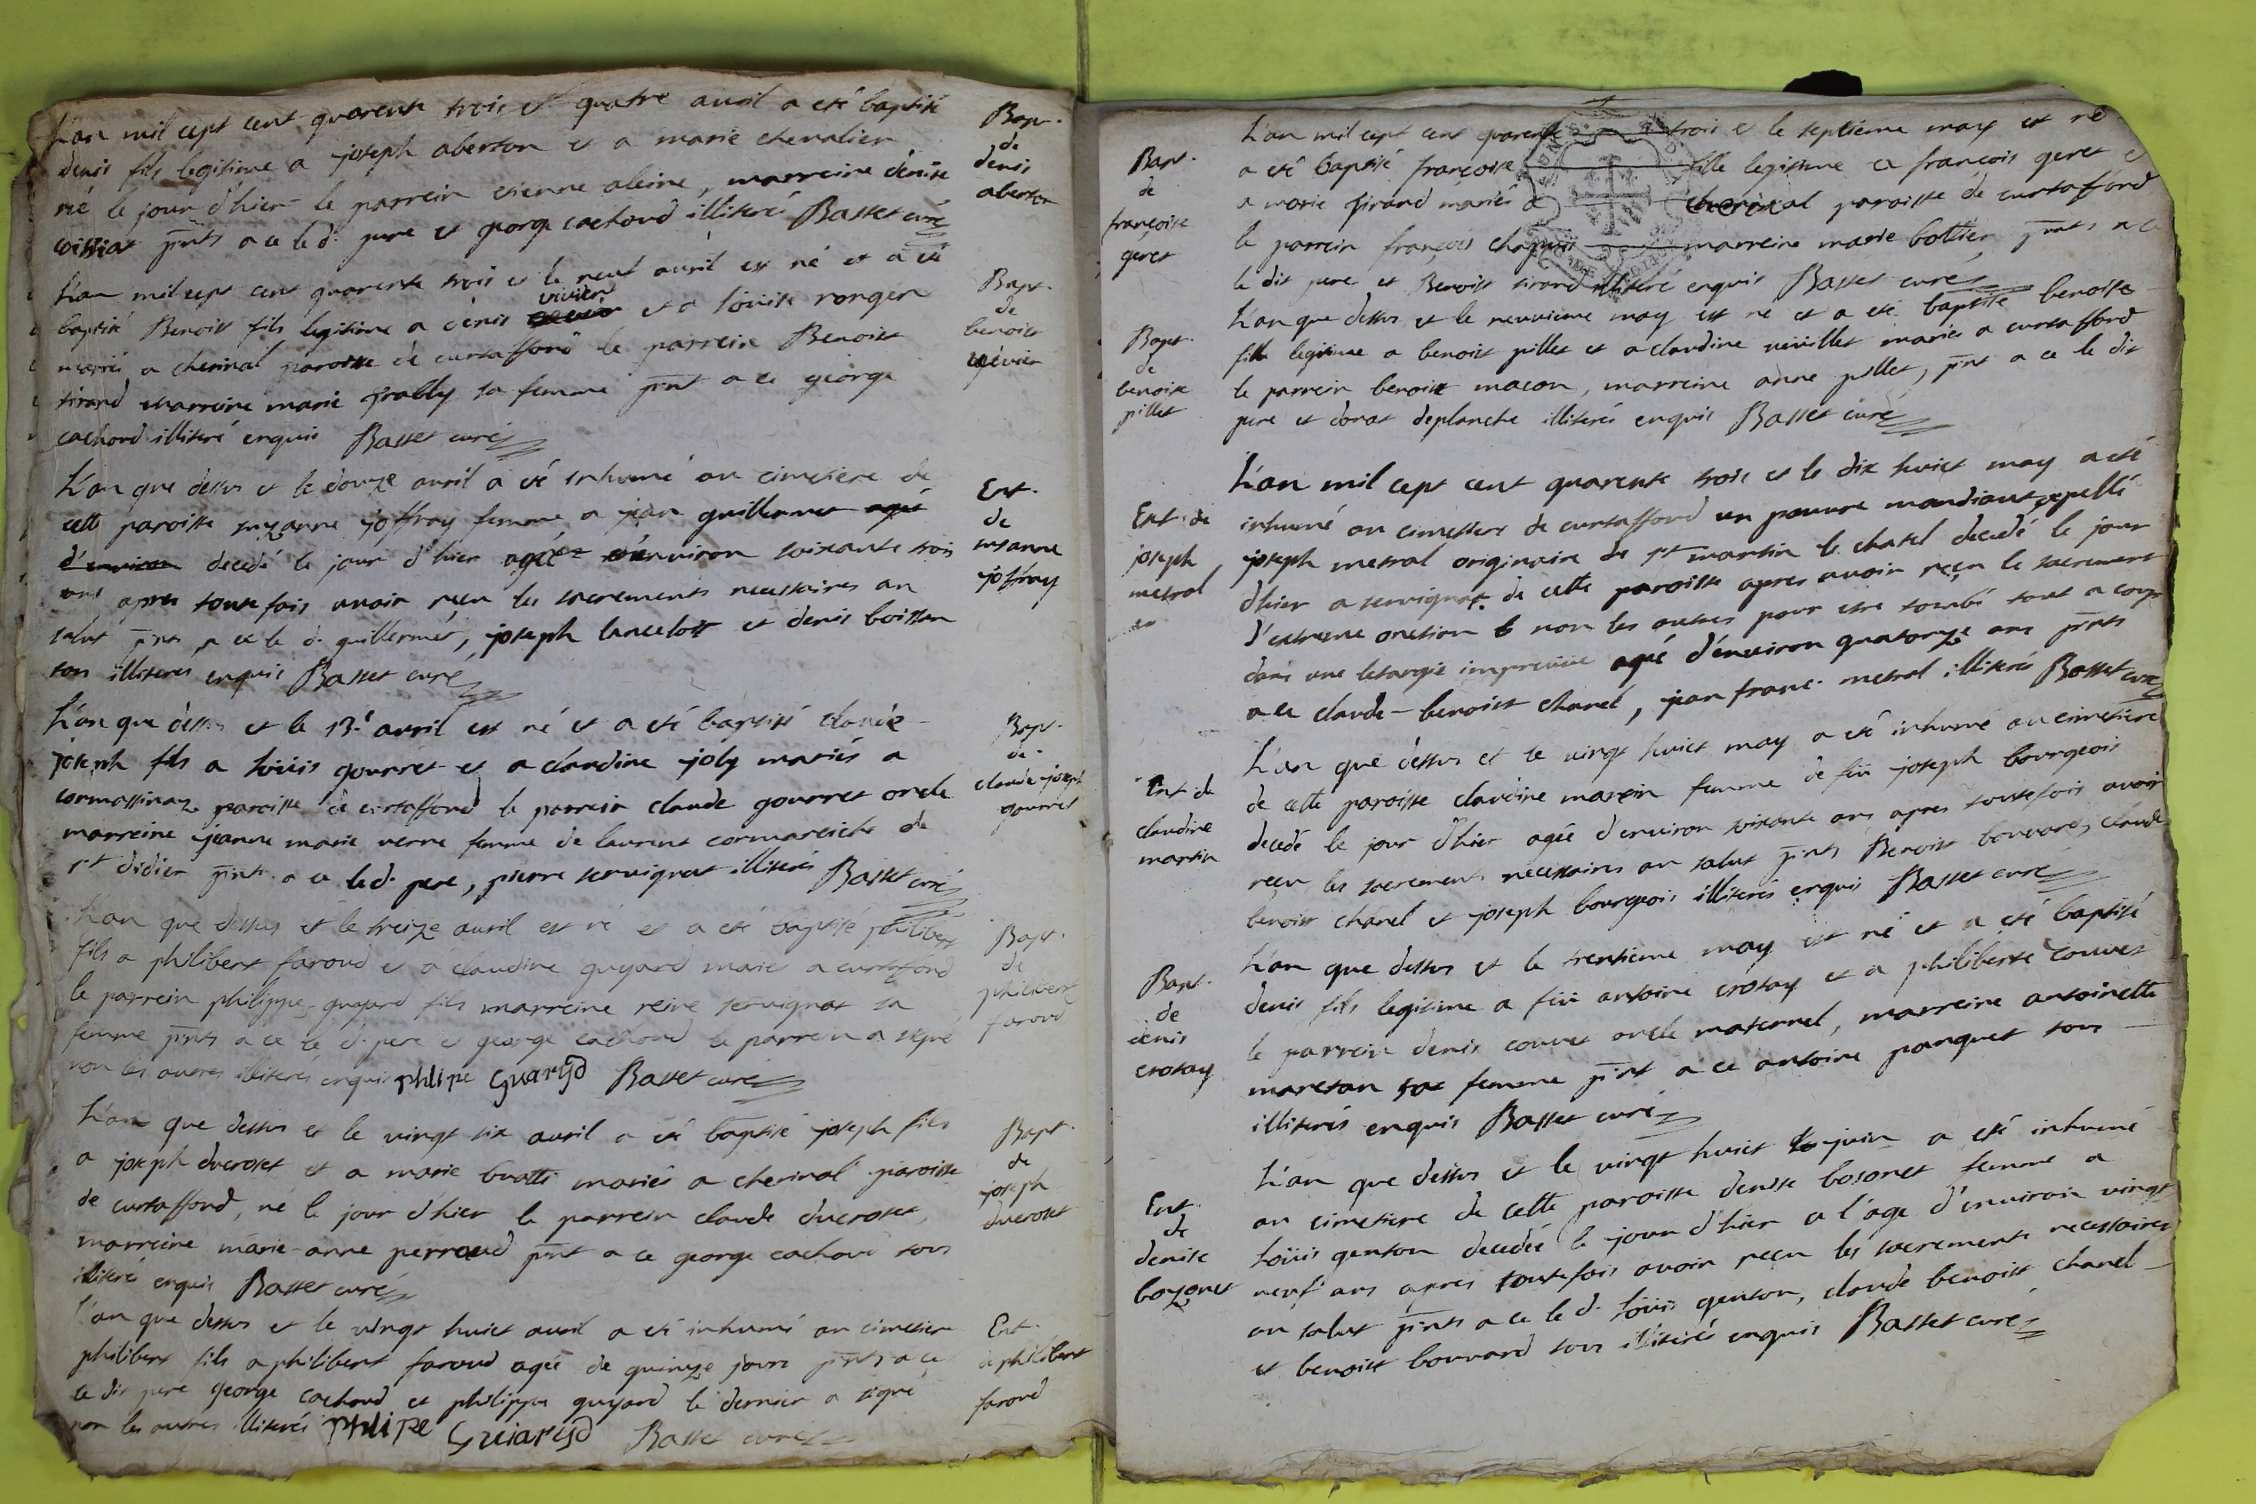 L'an mil cept cent quarente trois et quatre avril a eté baptisé
denis fils legitime a joseph aberton et a marie chevalier
né le jour d'hier le parrein etienne aleine, marreine denise
coissiat pnts a ce le d. pere et george cachoud illiterés Basset curé
Bapt.
de
denis
aberton
L'an mil cept cent quarente trois et le neuf avril est né et a eté
baptisé Benoist fils legitime a denis vivier et a loüise ronger
mariés a cherinal paroisse de curtafford le parrein Benoist
tirand marreine marie frably sa femme pnt a ce george
cachoud illiteré enquis Basset curé
Bapt.
de
benoist
vivier
L'an que dessus et le douze avril a eté inhumé au cimetiere de
cette paroisse suzanne joffray femme a jean guillermet agée
d'environ decedé le jour d'hier agée d'environ soixante trois
ans apres toutefois avoir reçu les sacrements necessaires au
salut pnts a ce le d. guillermet, joseph lancelot et denis boisson
tous illiterés enquis Basset curé
Ent.
de
susanne
joffray
L'an que dessus et le 13e avril est né et a eté baptisé claude
joseph fils a loüis gourret et a claudine joly mariés a
cormassinaz paroisse de curtafford le parrein claude gourret oncle
marreine jeanne marie verne femme de laurent cormareiche de
st didier pnt a ce le d. pere, pierre servignat illiterés Basset curé
Bapt.
de
claude joseph
gourret
L'an que dessus et le treize avril est né et a eté baptisé philibert
fils a philibert faroud et a claudine guyard marié a curtafford
le parrein philippe guyard fils marreine reine servignat sa
femme pnts a ce le d. pere et george cachoud le parrein a signé
non les autres illiterés enquis phlipe Guaryd Basset curé
Bapt.
de
philibert
faroud
L'an que dessus et le vingt six avril a eté baptisé joseph fils
a joseph ducrozet et a marie buatti mariés a cherinal paroisse
de curtafford, né le jour d'hier le parrein claude ducroset,
marreine marie-anne perroud pnt a ce george cachoud tous
illiterés enquis Basset curé
Bapt.
de
joseph
ducroset
L'an que dessus et le vingt huict avril a eté inhumé au cimetiere
philibert fils a philibert faroud agée de quinze jours pnts a ce
le dit pere george cachoud et philippe guyard le dernier a signé
non les autres illiterés phlipe Guiaryd Basset curé
Ent.
de philibert
faroud
L'an mil cept cent quarente trois et le septieme may est né
a eté baptisé françoise fille legitime a françois geret et
a marie tirand mariés a cherinal paroisse de curtafford
le parrein françois chapuis marreine marie bottier, pnts a ce
le dit pere et Benoist tirand illiteré enquis Basset curé
Bapt.
de
françoise
geret
L'an que dessus et le neuvieme may est né et a eté baptisé benoiste
fille legitime a benoist pillet et a claudine neuillet mariés a curtafford
le parrein benoist macon, marreine anne pillet, pnt a ce le dit
pere et donat deplanche illiterés enquis Basset curé
Bapt.
de
benoite
pillet
L'an mil cept cent quarente trois et le dix huict may a eté
inhumé au cimetiere de curtafford un pauvre mandiant appellé
joseph metral originaire de st martin le chatel decedé le jour
d'hier a servignat de cette paroisse apres avoir reçu le sacrement
d'extreme onction non les autres pour etre tombé tout a coup
dans une letargie impreveüe agé d'environ quatorze ans pnts
a ce claude-benoist chanel, jean franc. metral illiterés Basset curé
Ent. de
joseph
metral
L'an que dessus et le vingt huict may a eté inhumé au cimetiere
de cette paroisse claudine marein femme de feü joseph bourgeois
decedé le jour d'hier agée d'environ soixante ans apres toutefois avoir
reçu les sacrements necessaires au salut pnts Benoist bouvard, claude
benoist chanel et joseph bourgeois illiterés enquis Basset curé
Ent. de
claudine
martin
L'an que dessus et le trentieme may est né et a eté baptisé
denis fils legitime a feü antoine crotay et a philiberte couvet
le parrein denis couvet oncle maternel, marreine antoinette
maretan sa femme pnt a ce antoine panquet tous
illiterés enquis Basset curé
Bapt.
de
denis
crotay
L'an que dessus et le vingt huict juin a eté inhumé
au cimetiere de cette paroisse denise bosonet femme a
loüis genton decedée le jour d'hier a l'age d'environ vingt
neuf ans apres toutefois avoir reçu les sacrements necessaires
au salut pnts a ce le d. loüis genton, claude benoist chanel
et benoist bouvard tous illiterés enquis Basset curé
Ent.
de
denise
bozonet